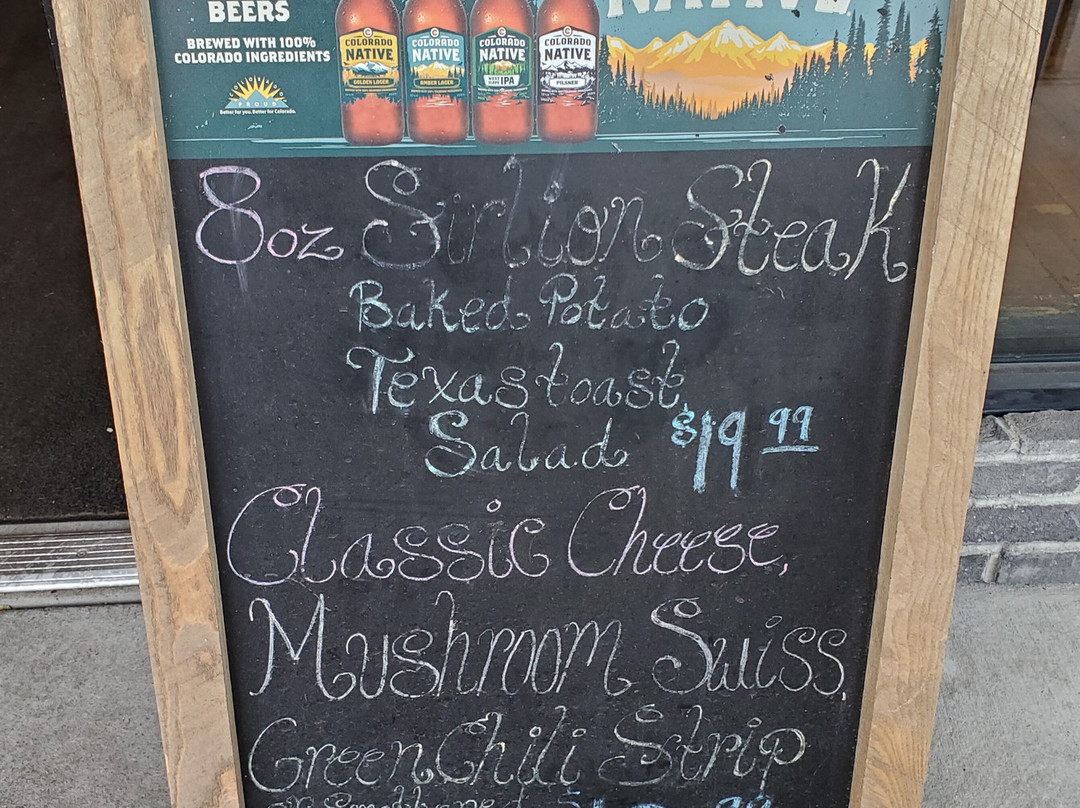 BEERS
BREWED WITH 100%
COLORADO INGREDIENTS
PROUD
Better for you. Better for Colorado.
COLORADO NATIVE GOLDEN LAGER
COLORADO NATIVE AMBER LAGER
COLORADO NATIVE IPA
COLORADO NATIVE PILSNER
NATIVE
8oz Sirlion Steak
Baked Potato
Texas toast
Salad $19.99
Classic Cheese,
Mushroom Swiss,
Green Chili Strip